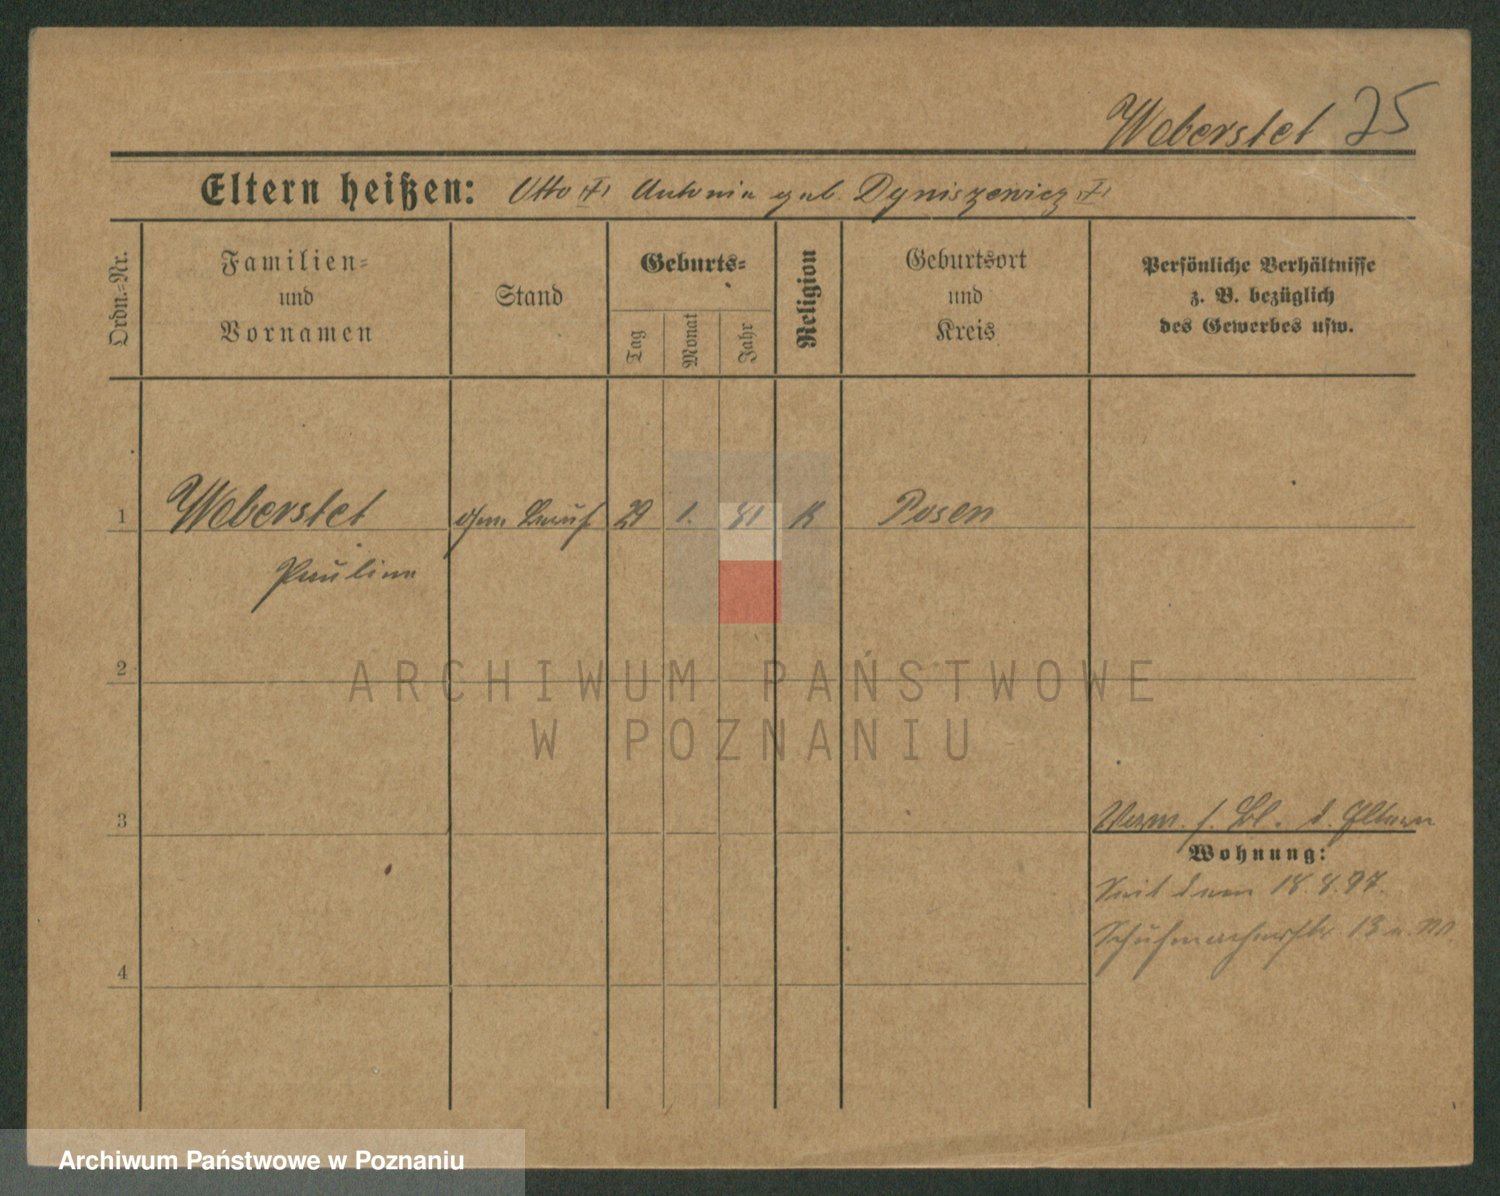 Weberstet 25
Eltern heißen: Otto (†) Antonie geb. Dyniszewicz (†)
Ordn.-Nr.
Familien-
und
Vornamen
Stand
Geburts-
Tag
Monat
Jahr
Religion
Geburtsort
und
Kreis
Persönliche Verhältnisse
z. B. bezüglich
des Gewerbes usw.
1 Weberstet ohne Beruf 29 1. 81 K Posen
Pauline
2
ARCHIWUM PAŃSTWOWE
W POZNANIU
3
Verm. s. Bl. d. Eltern
Wohnung:
Seit dem 18.8.97.
Schuhmacherstr. 13
4
Archiwum Państwowe w Poznaniu